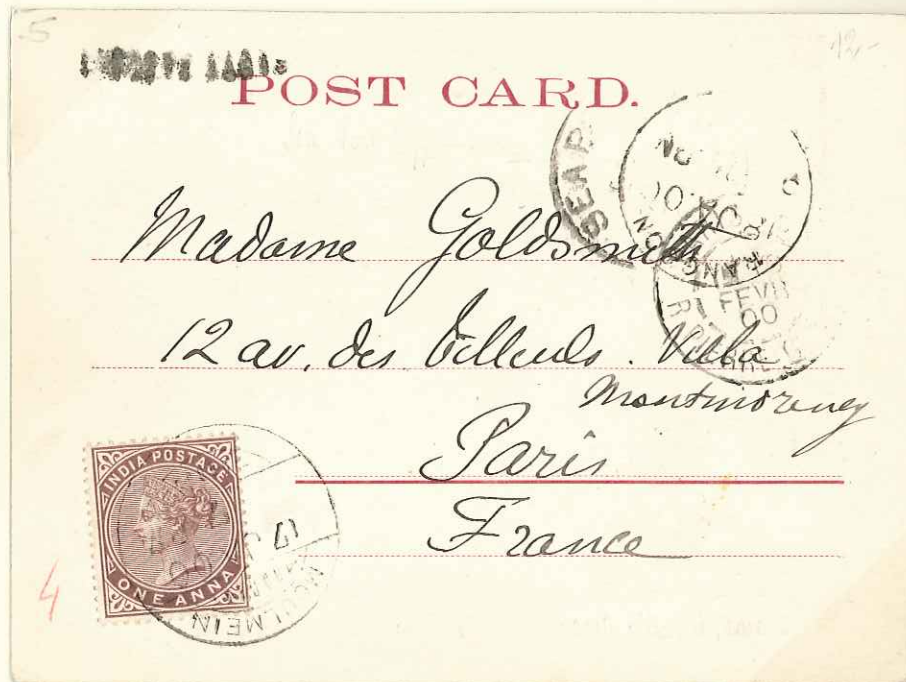 5
12-
POST CARD.
SEA P
RANGOON
FEVR
00
Madame Goldsmith
12 av. des Tilleuls. Villa
Montmorency
Paris
France
INDIA POSTAGE
ONE ANNA
17 J
MOULMEIN
4